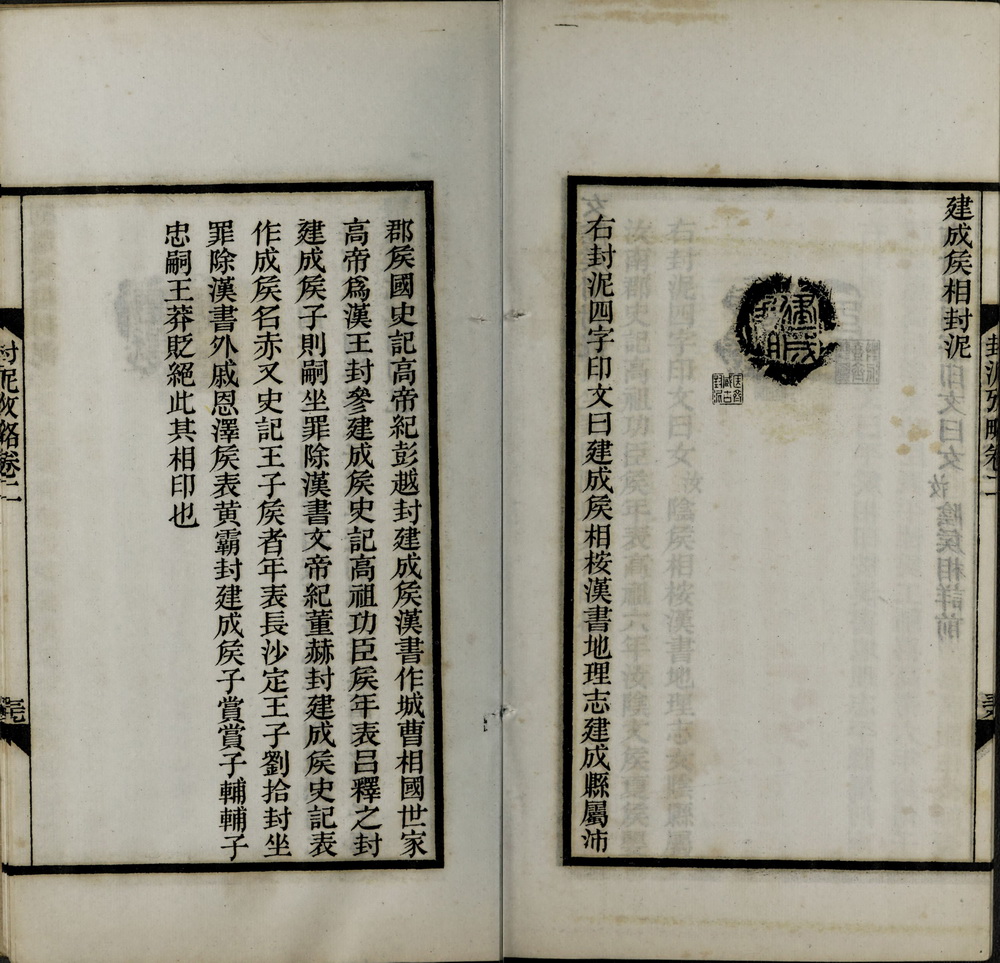 建成矦相封泥
右封泥四字印文曰建成矦相桉漢書地理志建成縣屬沛
郡矦國史記高帝紀彭越封建成矦漢書作城曹相國世家
高帝爲漢王封參建成矦史記高祖功臣矦年表呂釋之封
建成矦子則嗣坐罪除漢書文帝紀董赫封建成矦史記表
作成矦名赤又史記王子矦者年表長沙定王子劉拾封坐
罪除漢書外戚恩澤矦表黃霸封建成矦子賞賞子輔輔子
忠嗣王莽貶絕此其相印也
封泥攷略卷二